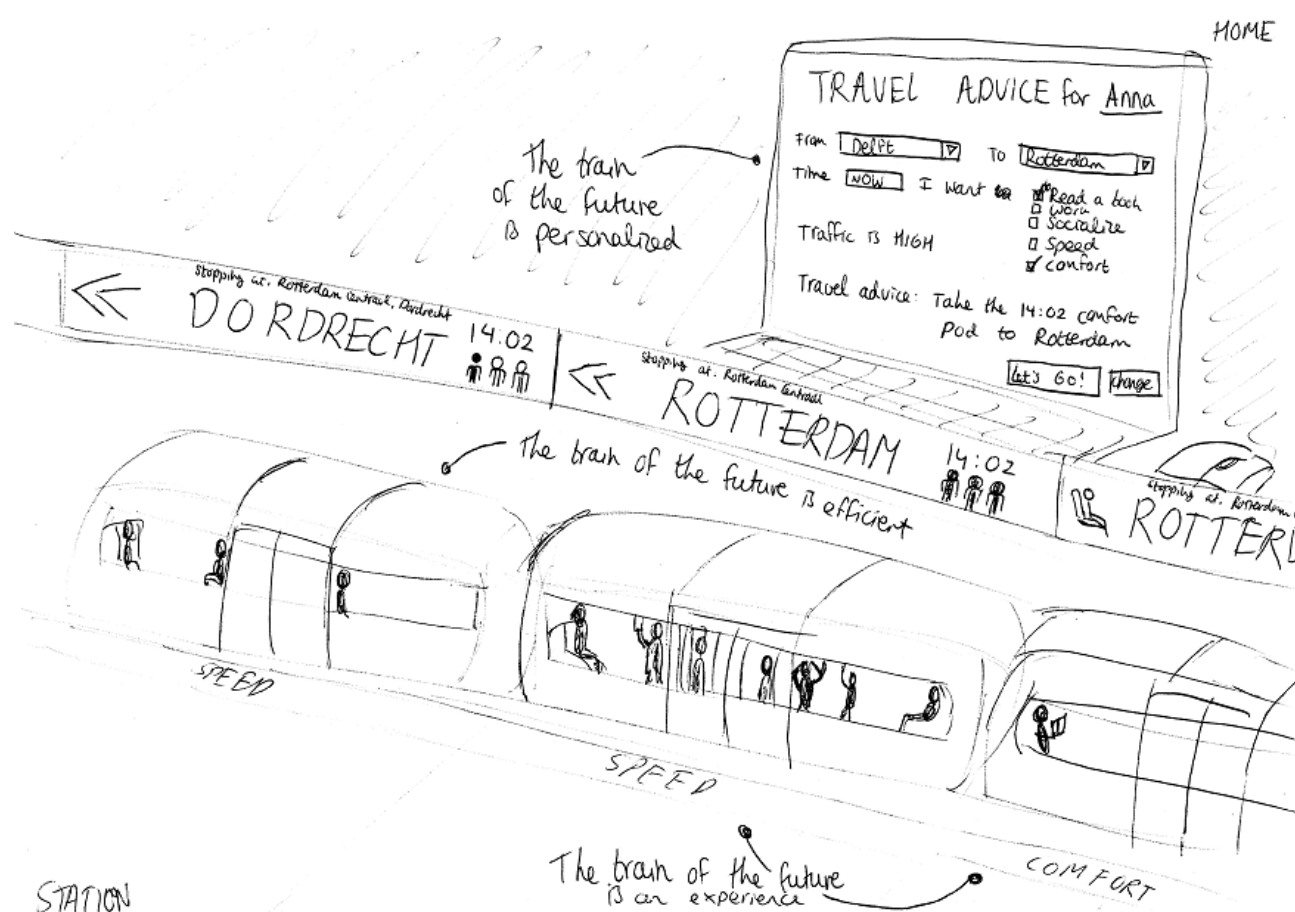 HOME
TRAVEL ADVICE for Anna
From Delft To Rotterdam
Time NOW I want to
Read a book
Work
Socialize
Speed
Comfort
Traffic is HIGH
Travel advice: Take the 14:02 comfort
Pod to Rotterdam
Let's GO! change
The train
of the future
is personalized
Stopping at. Rotterdam Centraal, Dordrecht
DORDRECHT 14.02
Stopping at. Rotterdam Centraal
ROTTERDAM 14:02
Stopping at. Rotterdam
ROTTERD
The train of the future is efficient
SPEED
SPEED
COMFORT
The train of the future
is an experience
STATION